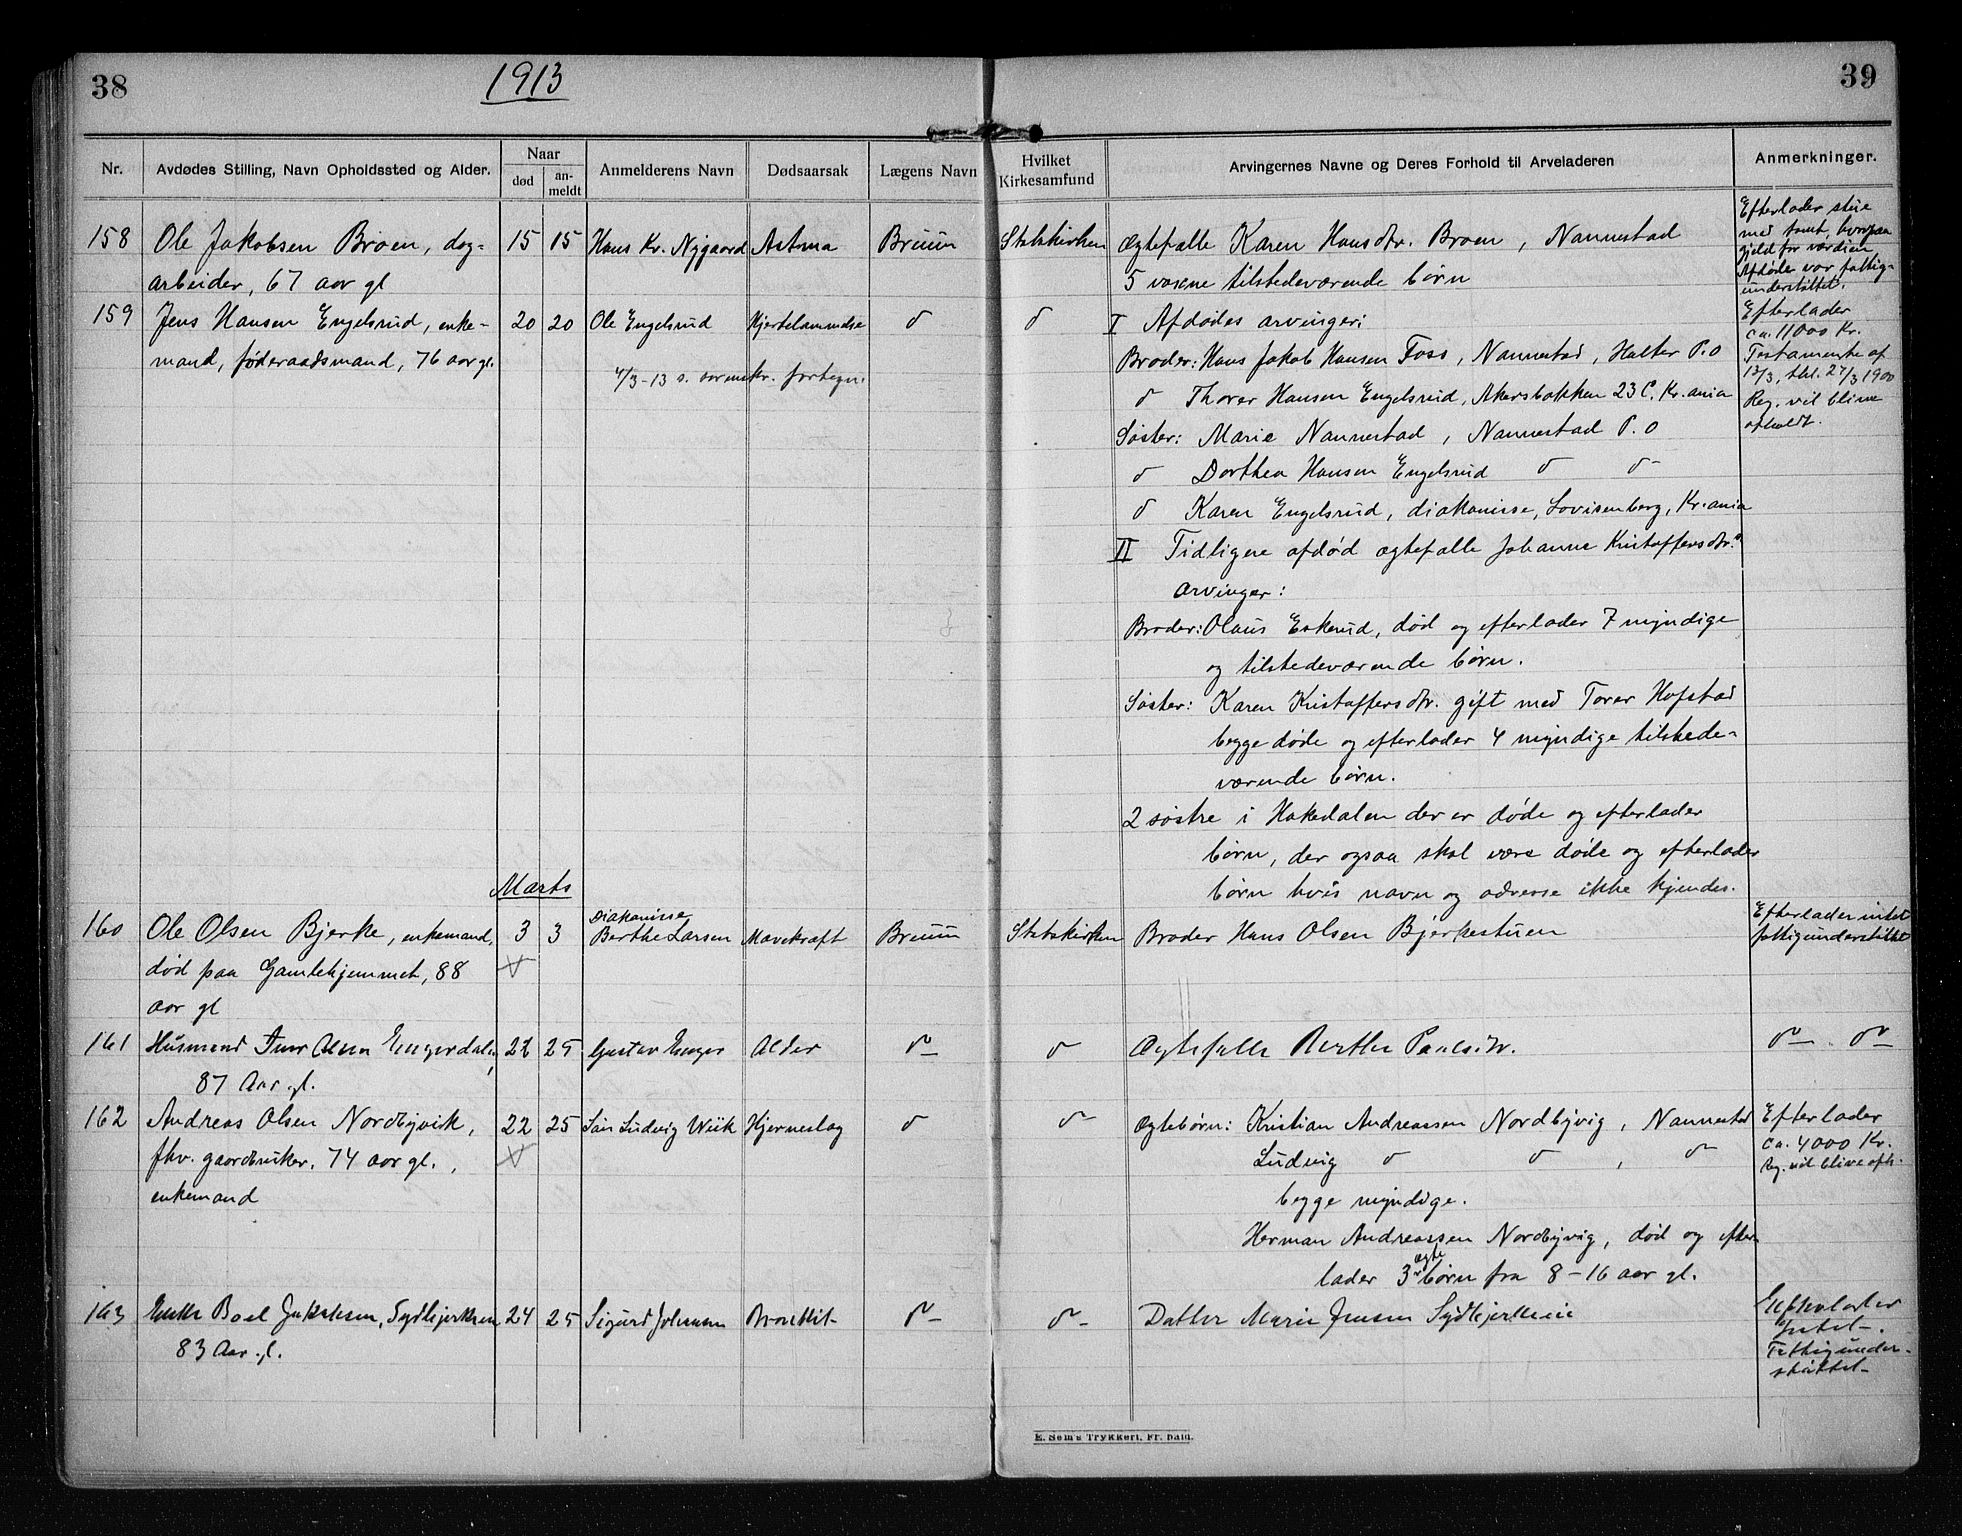 38
1913
39
Nr.
Avdødes Stilling, Navn Opholdssted og Alder.
Naar
død
an-
meldt
Anmelderens Navn
Dødsaarsak
Lægens Navn
Hvilket
Kirkesamfund
Arvingernes Navne og Deres Forhold til Arveladeren
Anmerkninger.
158 Ole Jakobsen Broen, dag- 15 15 Hans Kr. Nygaard Astma Bruun Statskirken Ægtefælle Karen Hansdtr. Broen, Nannestad
arbeider, 67 aar gl
5 voxne tilstedeværende børn
Efterlader stue
med tomt, hvorpaa
gjeld for værdien
Afdøde var fattig-
understøttet.
159 Jens Hansen Engelsrud, enke- 20 20 Ole Engelsrud Hjertelammelse d d I Afdødes arvinger:
mand, føderaadsmand, 76 aar gl.
4/3-13 s. sorenskr. fortegn.
Broder: Hans Jakob Hansen Foss, Nannestad, Holter P.O
d Thorer Hansen Engelsrud, Akersbakken 23 C, Kr.ania
Søster: Marie Nannestad, Nannestad P.O
d Dorthea Hansen Engelsrud d d
d Karen Engelsrud, diakonisse, Lovisenberg, Kr.ania
II Tidligere afdød ægtefælle Johanne Kristoffersdtr.s
arvinger:
Broder: Olaus Eskerud, død og efterlader 7 myndige
og tilstedeværende børn.
Søster: Karen Kristoffersdtr. gift med Torer Hofstad
begge døde og efterlader 4 myndige tilstede-
værende børn.
2 søstre i Hakedalen der er døde og efterlader
børn, der ogsaa skal være døde og efterlader
børn hvis navn og adresse ikke kjendes.
Efterlader
ca. 11000 Kr.
Testamente af
12/3, tbl. 27/3 1900
Reg. vil blive
afholdt.
Marts
160 Ole Olsen Bjerke, enkemand, 3 3 Diakonisse
Berthe Larsen Mavekræft Bruun Statskirken Broder Hans Olsen Bjerkestuen
død paa Gamlehjemmet, 88
aar gl
Efterlader intet
fattigunderstøttet
161 Husmand Olsen Engerdalen, 22 25 Gustav Enger Alder d d Ægtefælle Berthe Paulsdtr. d d
87 Aar gl.
162 Andreas Olsen Nordbyvik, 22 25 Søn Ludvig Wiik Hjerneslag d d Ægtebørn: Kristian Andreassen Nordbyvig, Nannestad
fhv. gaardbruker, 74 aar gl.,
enkemand
Ludvig d d, d
begge myndige.
Herman Andreassen Nordbyvig, død og efter-
lader 3 ægte børn fra 8-16 aar gl.
Efterlader
ca. 4000 Kr.
Reg. vil blive afh.
163 Enke Boel Jakobsen, Sydbjerkeeie 24 25 Sigurd Johansen Bronkit d d Datter Marie Jensen Sydbjerkeeie
83 Aar gl.
Efterlader
Intet.
Fattigunder-
støttet
E. Sem's Trykkeri, Fr.hald.